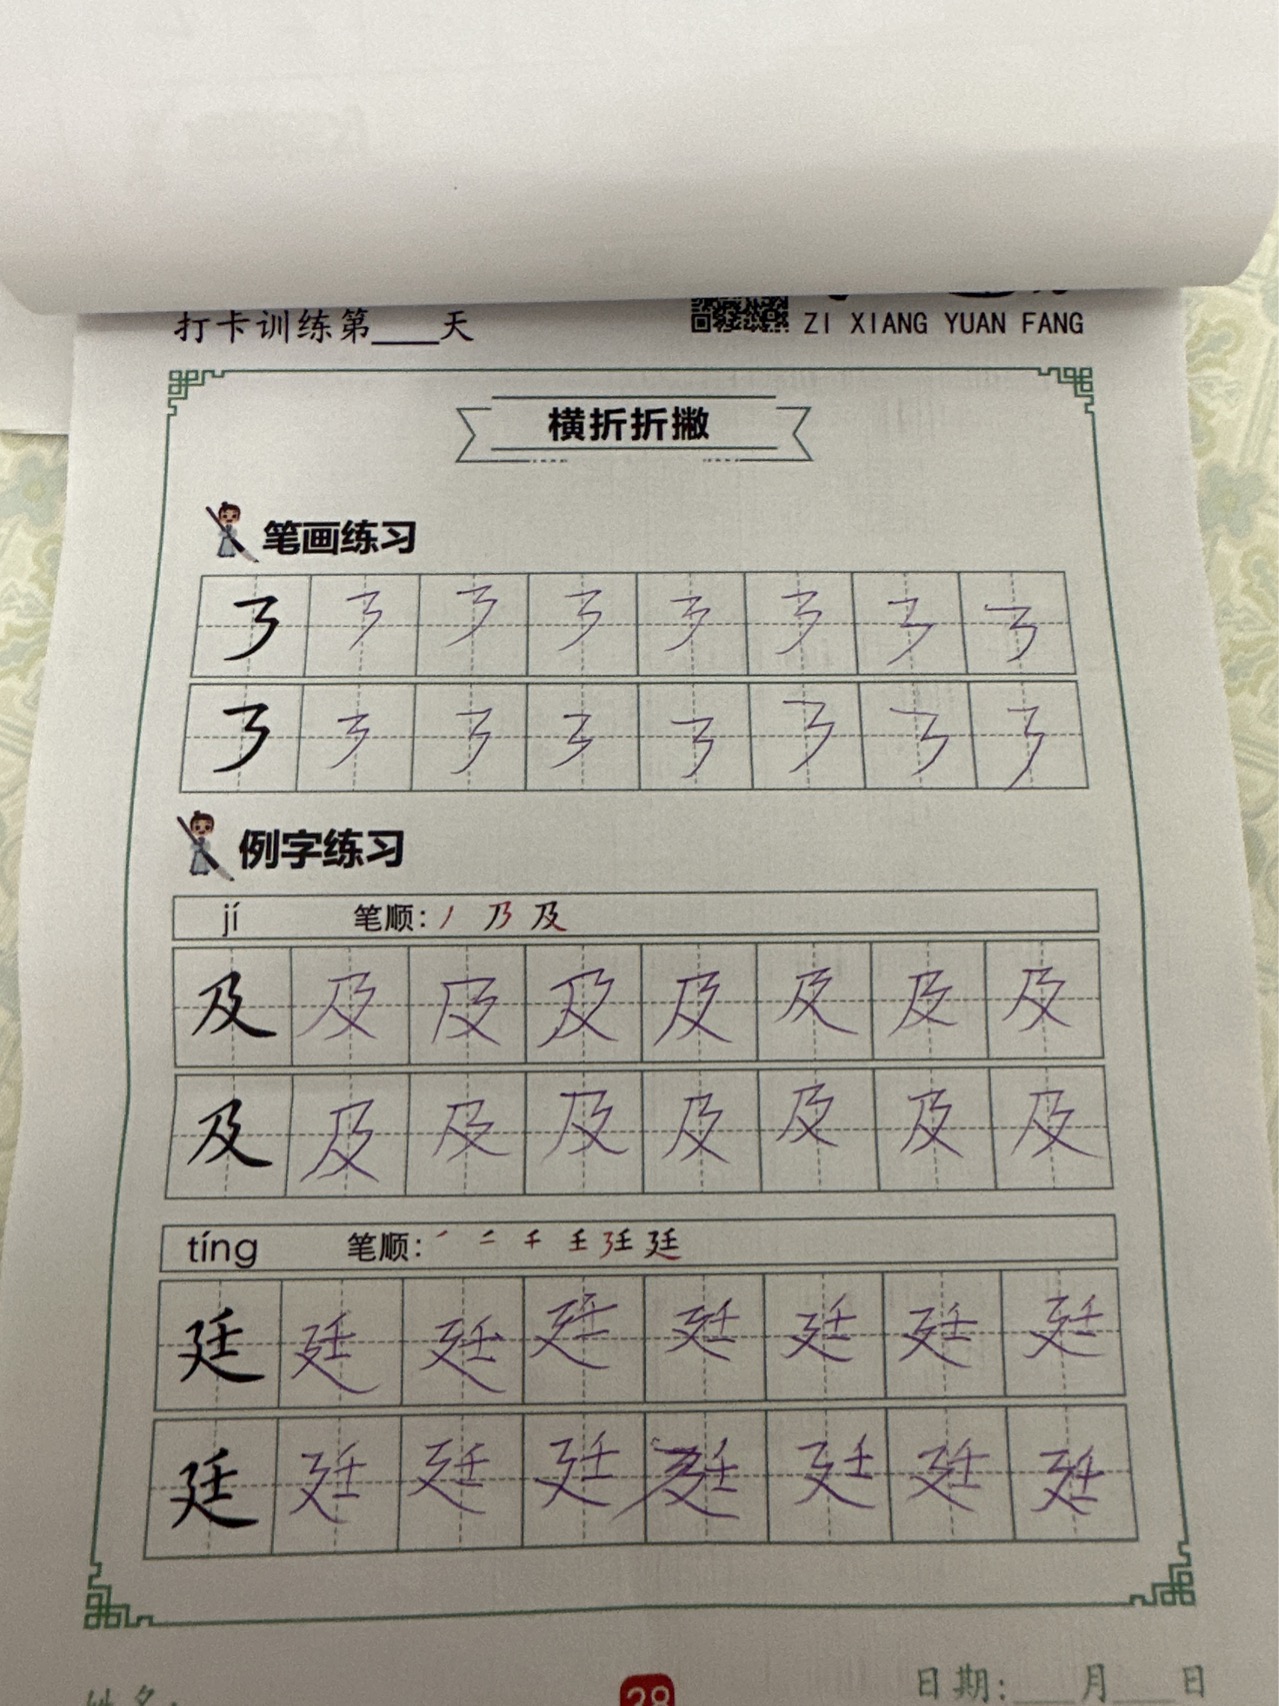 打卡训练第____天
ZI XIANG YUAN FANG
横折折撇
笔画练习
㇋ ㇋ ㇋ ㇋ ㇋ ㇋ ㇋ ㇋
㇋ ㇋ ㇋ ㇋ ㇋ ㇋ ㇋ ㇋
例字练习
jí 笔顺: 丿 乃 及
及 及 及 及 及 及 及 及
及 及 及 及 及 及 及 及
tíng 笔顺:
廷 廷 廷 廷 廷 廷 廷 廷
廷 廷 廷 廷 廷 廷 廷 廷
姓名:
28
日期:____月____日